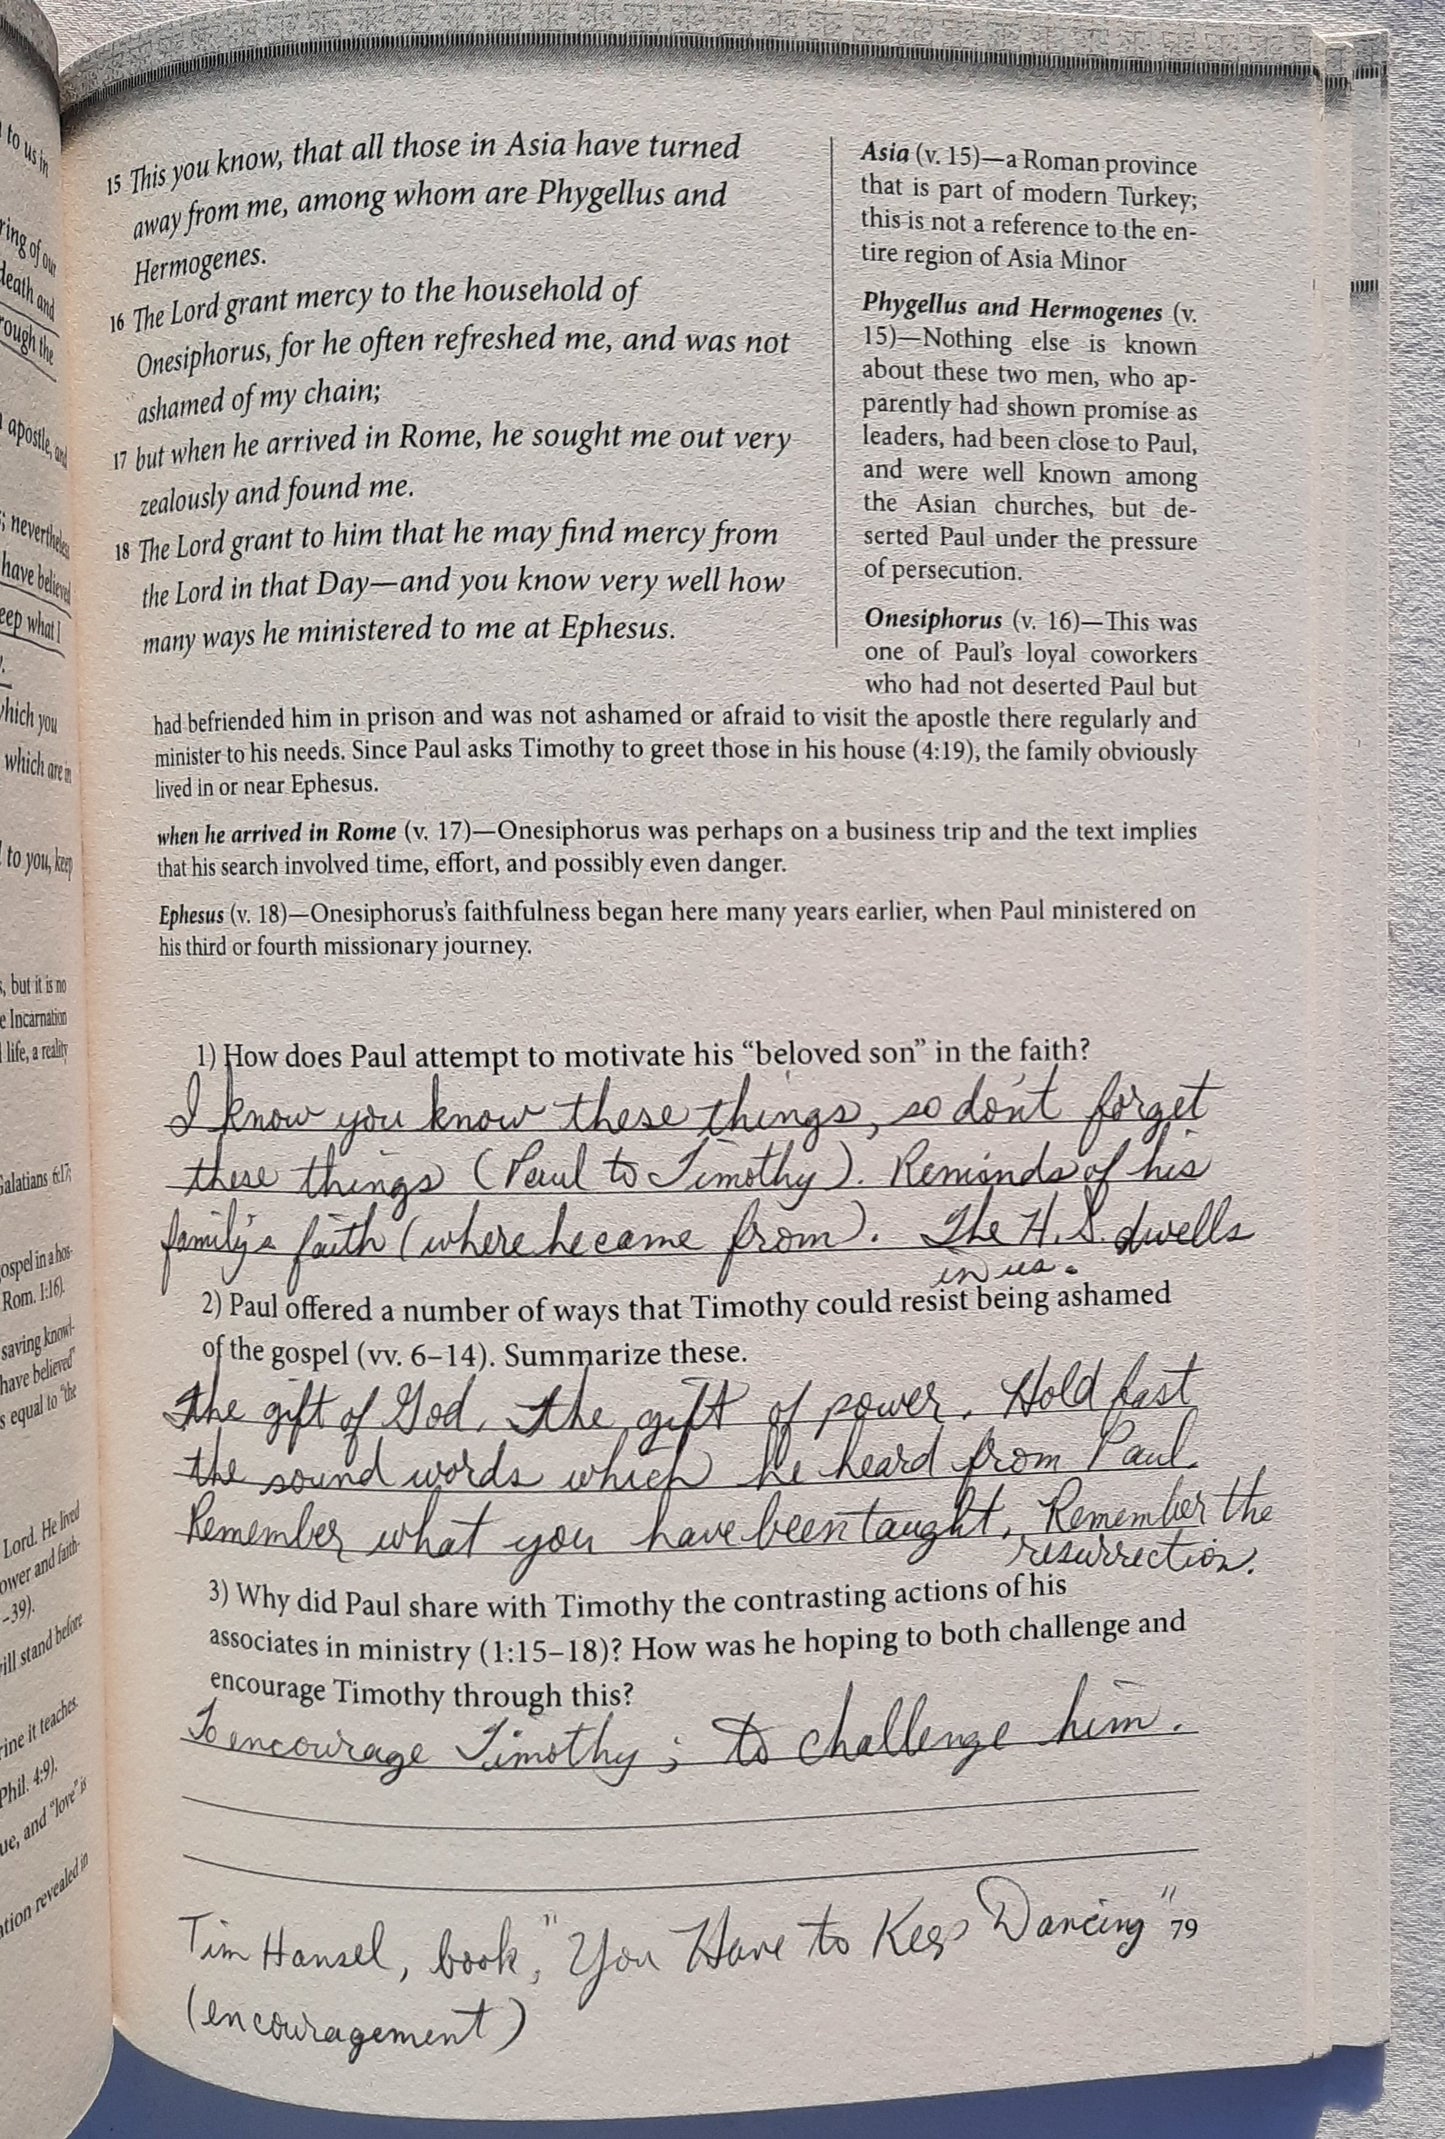 to us in
ring of our
death and
rough the
apostle, and
; nevertheless
have believed
eep what I
which you
which are in
to you, keep
, but it is no
e Incarnation
life, a reality
Galatians 6:17;
ospel in a hos-
Rom. 1:16).
saving knowl-
have believed"
s equal to "the
Lord. He lived
ower and faith-
–39).
ill stand before
rine it teaches.
Phil. 4:9).
ue, and "love" is
ation revealed in
15 This you know, that all those in Asia have turned
away from me, among whom are Phygellus and
Hermogenes.
16 The Lord grant mercy to the household of
Onesiphorus, for he often refreshed me, and was not
ashamed of my chain;
17 but when he arrived in Rome, he sought me out very
zealously and found me.
18 The Lord grant to him that he may find mercy from
the Lord in that Day—and you know very well how
many ways he ministered to me at Ephesus.
Asia (v. 15)—a Roman province
that is part of modern Turkey;
this is not a reference to the en-
tire region of Asia Minor
Phygellus and Hermogenes (v.
15)—Nothing else is known
about these two men, who ap-
parently had shown promise as
leaders, had been close to Paul,
and were well known among
the Asian churches, but de-
serted Paul under the pressure
of persecution.
Onesiphorus (v. 16)—This was
one of Paul's loyal coworkers
who had not deserted Paul but
had befriended him in prison and was not ashamed or afraid to visit the apostle there regularly and
minister to his needs. Since Paul asks Timothy to greet those in his house (4:19), the family obviously
lived in or near Ephesus.
when he arrived in Rome (v. 17)—Onesiphorus was perhaps on a business trip and the text implies
that his search involved time, effort, and possibly even danger.
Ephesus (v. 18)—Onesiphorus's faithfulness began here many years earlier, when Paul ministered on
his third or fourth missionary journey.
1) How does Paul attempt to motivate his "beloved son" in the faith?
I know you know these things, so don't forget
these things (Paul to Timothy). Reminds of his
family's faith (where he came from). The H. S. dwells
in us.
2) Paul offered a number of ways that Timothy could resist being ashamed
of the gospel (vv. 6–14). Summarize these.
The gift of God. The gift of power. Hold fast
the sound words which he heard from Paul.
Remember what you have been taught. Remember the
resurrection.
3) Why did Paul share with Timothy the contrasting actions of his
associates in ministry (1:15–18)? How was he hoping to both challenge and
encourage Timothy through this?
To encourage Timothy; to challenge him.
Tim Hansel, book, "You Have to Keep Dancing"
79
(encouragement)